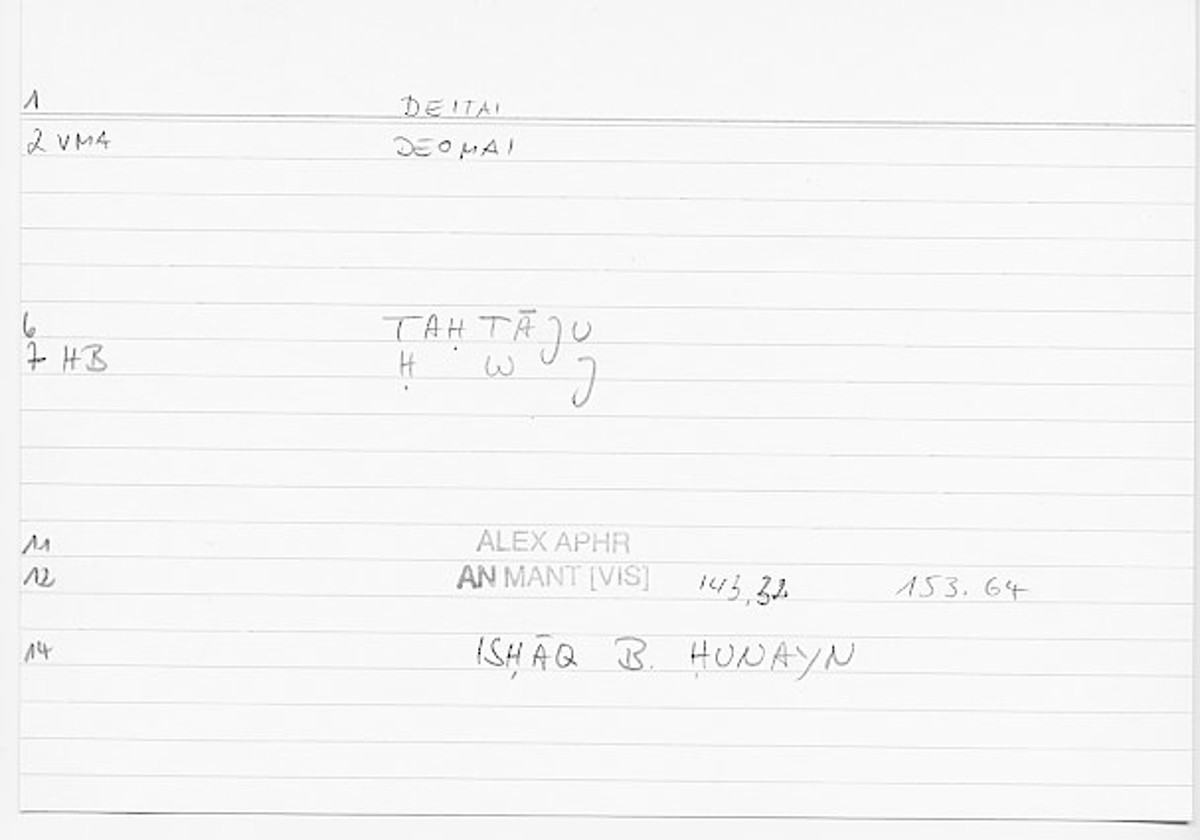 1 DEITAI
2 VMA DEOMAI
6 TAḤTĀJU
7 HB Ḥ W J
11 ALEX APHR
12 AN MANT [VIS] 143,32 153.64
14 ISḤĀQ B. ḤUNAYN